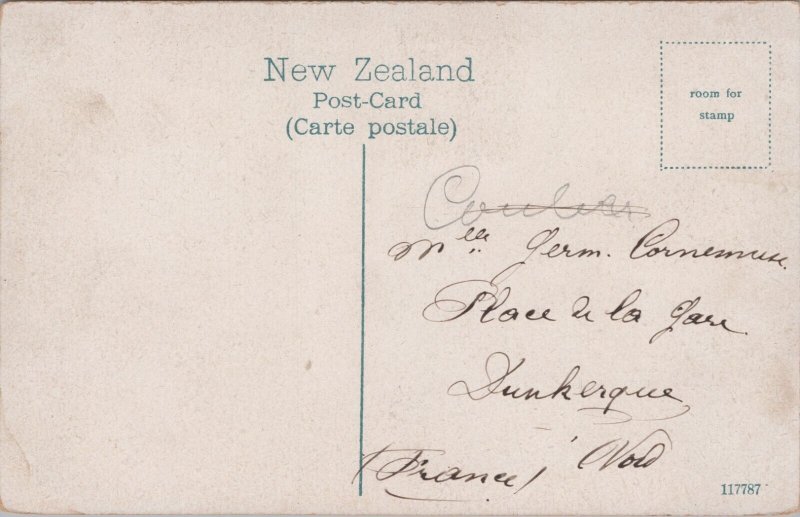 New Zealand
Post-Card
(Carte postale)
room for
stamp
Mlle Germ. Cornemuse.
Place de la Gare
Dunkerque
(France) Nord
117787